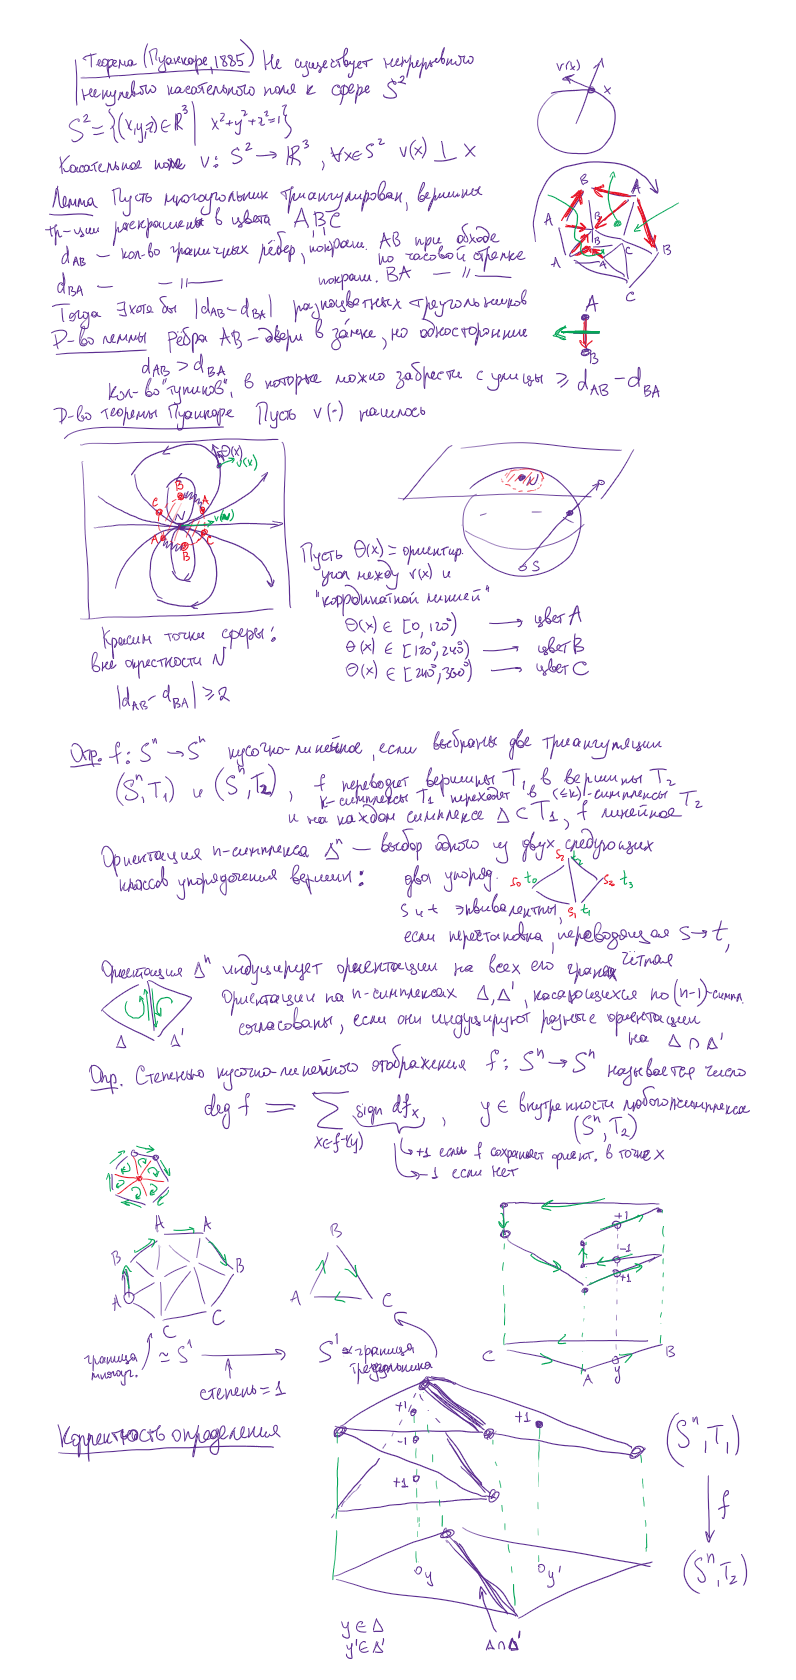 Теорема (Пуанкаре, 1885) Не существует непрерывного
ненулевого касательного поля к сфере S²
S² = {(x,y,z) ∈ ℝ³ | x²+y²+z²=1}
Касательное поле v: S² → ℝ³, ∀x∈S² v(x) ⊥ x
v(x)
x
Лемма Пусть многоугольник триангулирован, вершины
тр-ции раскрашены в цвета A, B, C
d_AB — кол-во граничных рёбер, покраш. AB при обходе
по часовой стрелке
d_BA — — // — покраш. BA — // —
Тогда ∃ хотя бы |d_AB − d_BA| разноцветных треугольников
B
A
A
B
B
C
B
A
A
C
Д-во леммы Рёбра AB — двери в замке, но односторонние
A
B
d_AB > d_BA
Кол-во "тупиков", в которые можно забрести с улицы ⩾ d_AB − d_BA
Д-во теоремы Пуанкаре Пусть v(·) нашлось
Θ(x)
v(x)
B
C
A
N
v(N)
A
B
C
N
S
Пусть Θ(x) = ориентир.
угол между v(x) и
"координатной линией"
Θ(x) ∈ [0, 120°) → цвет A
Θ(x) ∈ [120°, 240°) → цвет B
Θ(x) ∈ [240°, 360°) → цвет C
Красим точки сферы:
вне окрестности N
|d_AB − d_BA| ⩾ 2
Опр. f: Sⁿ → Sⁿ кусочно-линейное, если выбраны две триангуляции
(Sⁿ, T₁) и (Sⁿ, T₂), f переводит вершины T₁ в вершины T₂
k-симплексы T₁ переходят в (≤k)-симплексы T₂
и на каждом симплексе Δ ⊂ T₁, f линейное
Ориентация n-симплекса Δⁿ — выбор одного из двух следующих
классов упорядочения вершин: два упоряд.
s₂ t₂
s₀ t₀
s₂ t₃
s₁ t₁
s и t эквивалентны,
если перестановка, переводящая s → t,
чётная
Ориентация Δⁿ индуцирует ориентации на всех его гранях
Ориентации на n-симплексах Δ, Δ', касающихся по (n-1)-симпл.
согласованы, если они индуцируют разные ориентации
на Δ ∩ Δ'
Δ Δ'
Опр. Степенью кусочно-линейного отображения f: Sⁿ → Sⁿ называется число
deg f = ∑ sign df_x, y ∈ внутренности любого n-симплекса
x∈f⁻¹(y)
(Sⁿ, T₂)
+1 если f сохраняет ориент. в точке x
−1 если нет
A A
B
B
A
C
C
B
A
C
+1
−1
+1
C
A
y
B
граница
многоуг.
≃ S¹
S¹ ≃ граница
треугольника
степень = 1
Корректность определения
+1
−1
+1
+1
(Sⁿ, T₁)
f
(Sⁿ, T₂)
y
y'
y ∈ Δ
y' ∈ Δ'
Δ ∩ Δ'